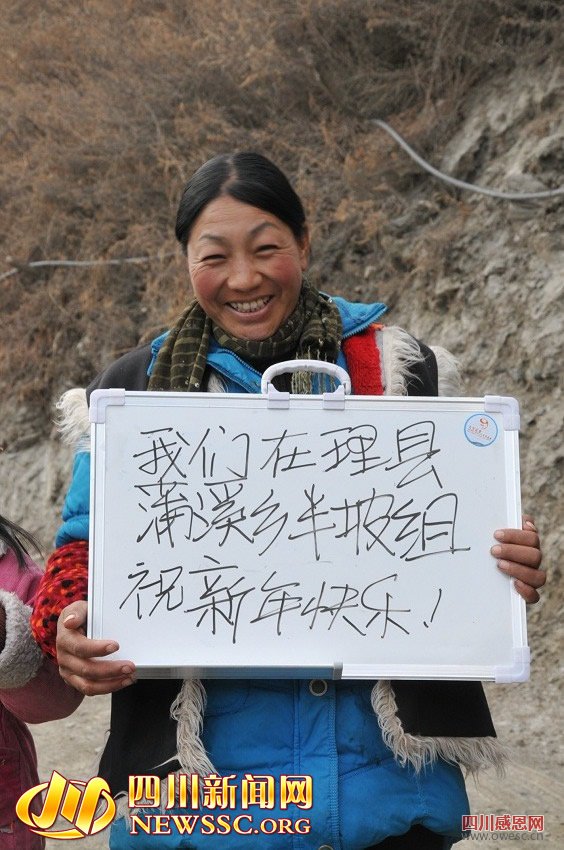 我们在理县
蒲溪乡半坡组
祝新年快乐!
四川新闻网
NEWSSC.ORG
四川感恩网
www.owesc.cn